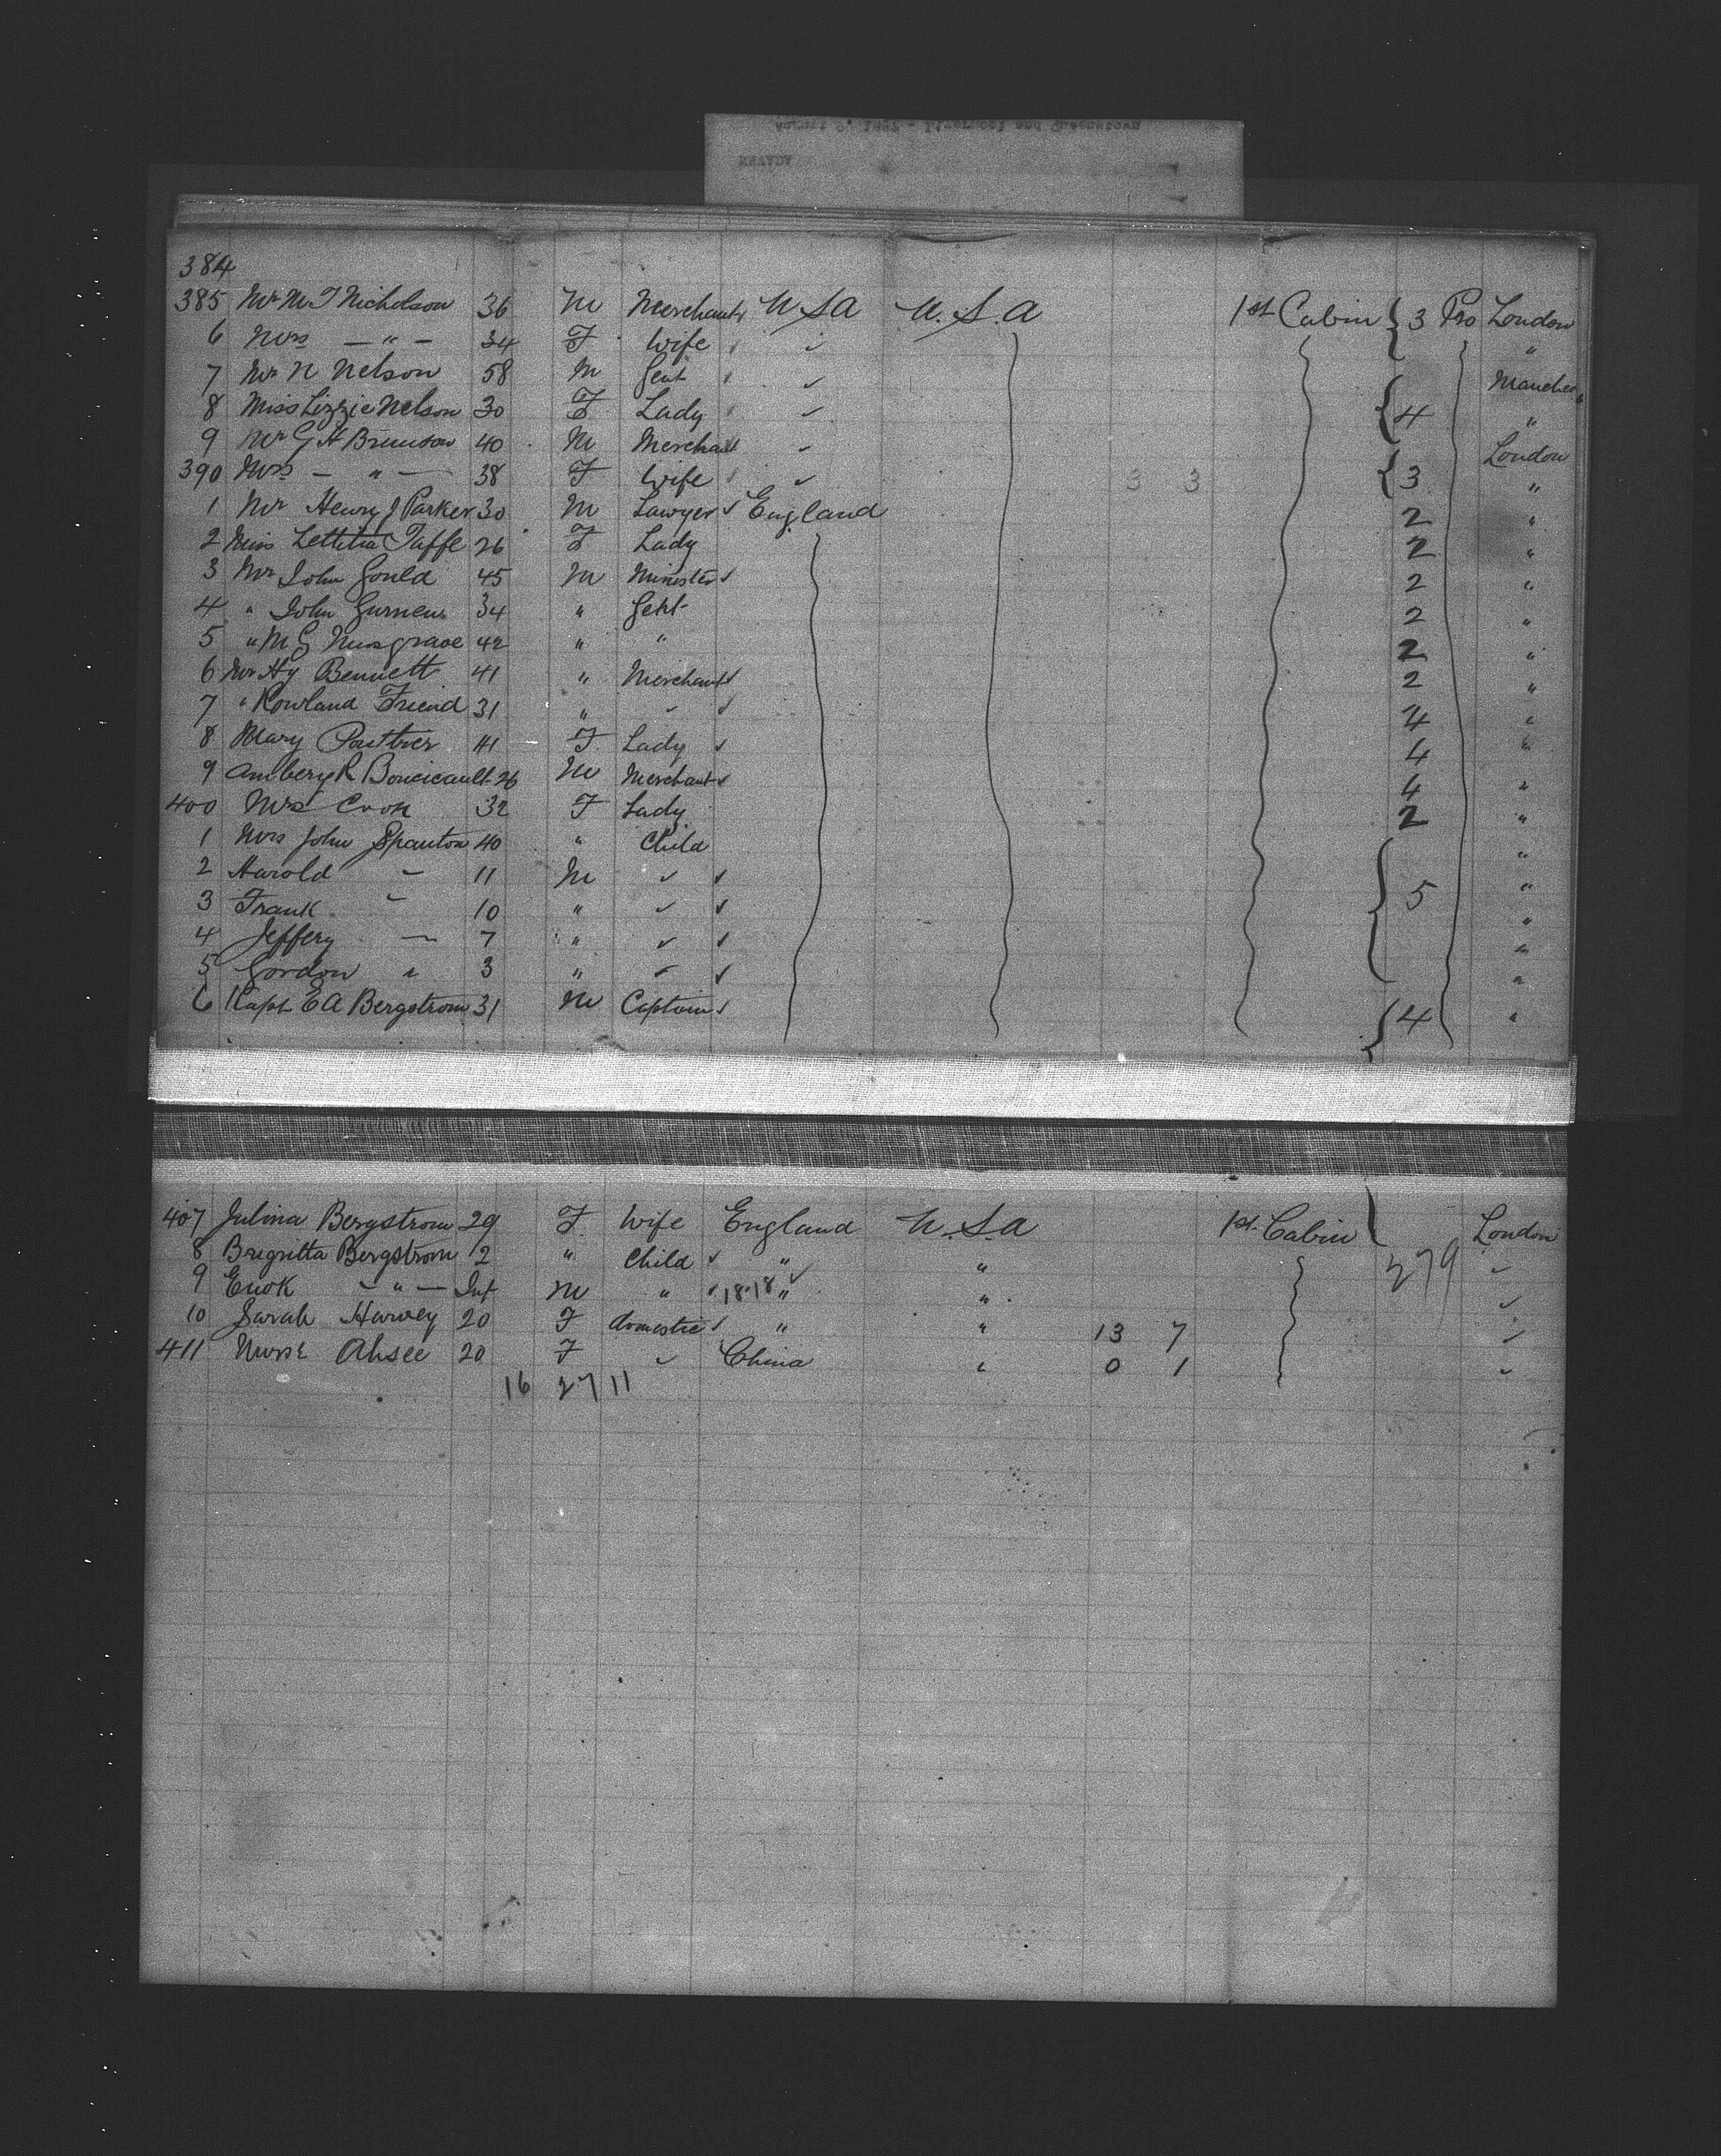 384
385 Mr M T Nicholson 36 M Merchant U S A U. S. A 1st Cabin 3 Pro London
6 Mrs — " — 34 F Wife "
7 Mr N Nelson 58 M Gent
8 Miss Lizzie Nelson 30 F Lady 4 "
9 Mr G H Brunson 40 M Merchant London
390 Mrs — " — 38 F Wife 3 3 3 "
1 Mr Henry J Parker 30 M Lawyer England 2 "
2 Miss Lettitia Taffe 26 F Lady 2 "
3 Mr John Gould 45 M Minister 2 "
4 " John 34 " Gent 2 "
5 " M G Musgrave 42 " " 2 "
6 Mr Hy Bennett 41 " Merchant 2 "
7 " Rowland Friend 31 " 4 "
8 Mary 41 F Lady 4 "
9 R Boucicault 26 M Merchant 4 "
400 Mrs 32 F Lady 2 "
1 Mrs John Spanton 40 " Child "
2 Harold 11 M 5 "
3 Frank 10 " "
4 Jeffery 7 " "
5 Gordon " 3 " "
6 Capt E A Bergstrom 31 M Captain 4 "
407 Julina Bergstrom 29 F Wife England U. S. a 1st Cabin London
8 Brigritta Bergstrom 2 " Child " " 279
9 Enok — " — Inf M " 18.18 " "
10 Sarah Harvey 20 F domestic " " 13 7
411 Nurse Ahsee 20 F China " 0 1
16 27 11